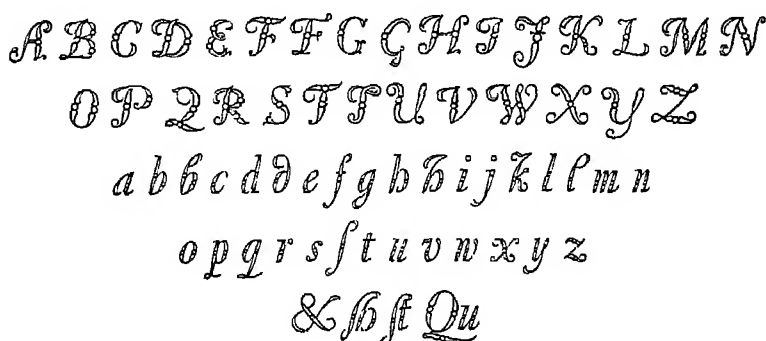 A B C D E F F G G H I J K L M N
O P Q R S T T U V W X Y Z
a b b c d d e f g h h i j k l l m n
o p q r s ſ t u v w x y z
& ſh ſt Qu